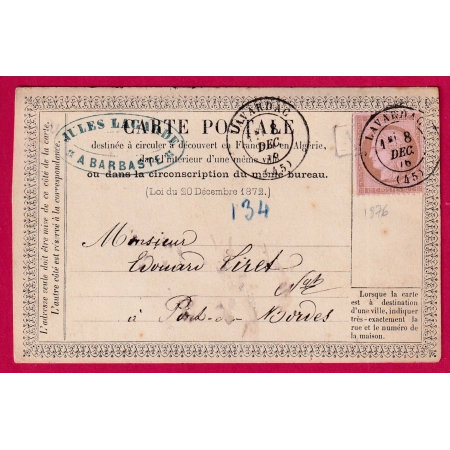 JULES
A BARBASTE
CARTE POSTALE
destinée à circuler à découvert en France et en Algérie,
l'intérieur d'une même
ou dans la circonscription du même bureau.
(Loi du 20 Décembre 1872.)
134
LAVARDAC
DEC.
(45)
LAVARDAC
8
DEC.
76
(45)
1876
Monsieur
Edouard
à Port-de-Bordes
L'adresse seule doit être mise de ce côté de la carte.
L'autre côté est réservé à la correspondance.
Lorsque la carte
est à destination
d'une ville, indiquer
très-exactement la
rue et le numéro de
la maison.